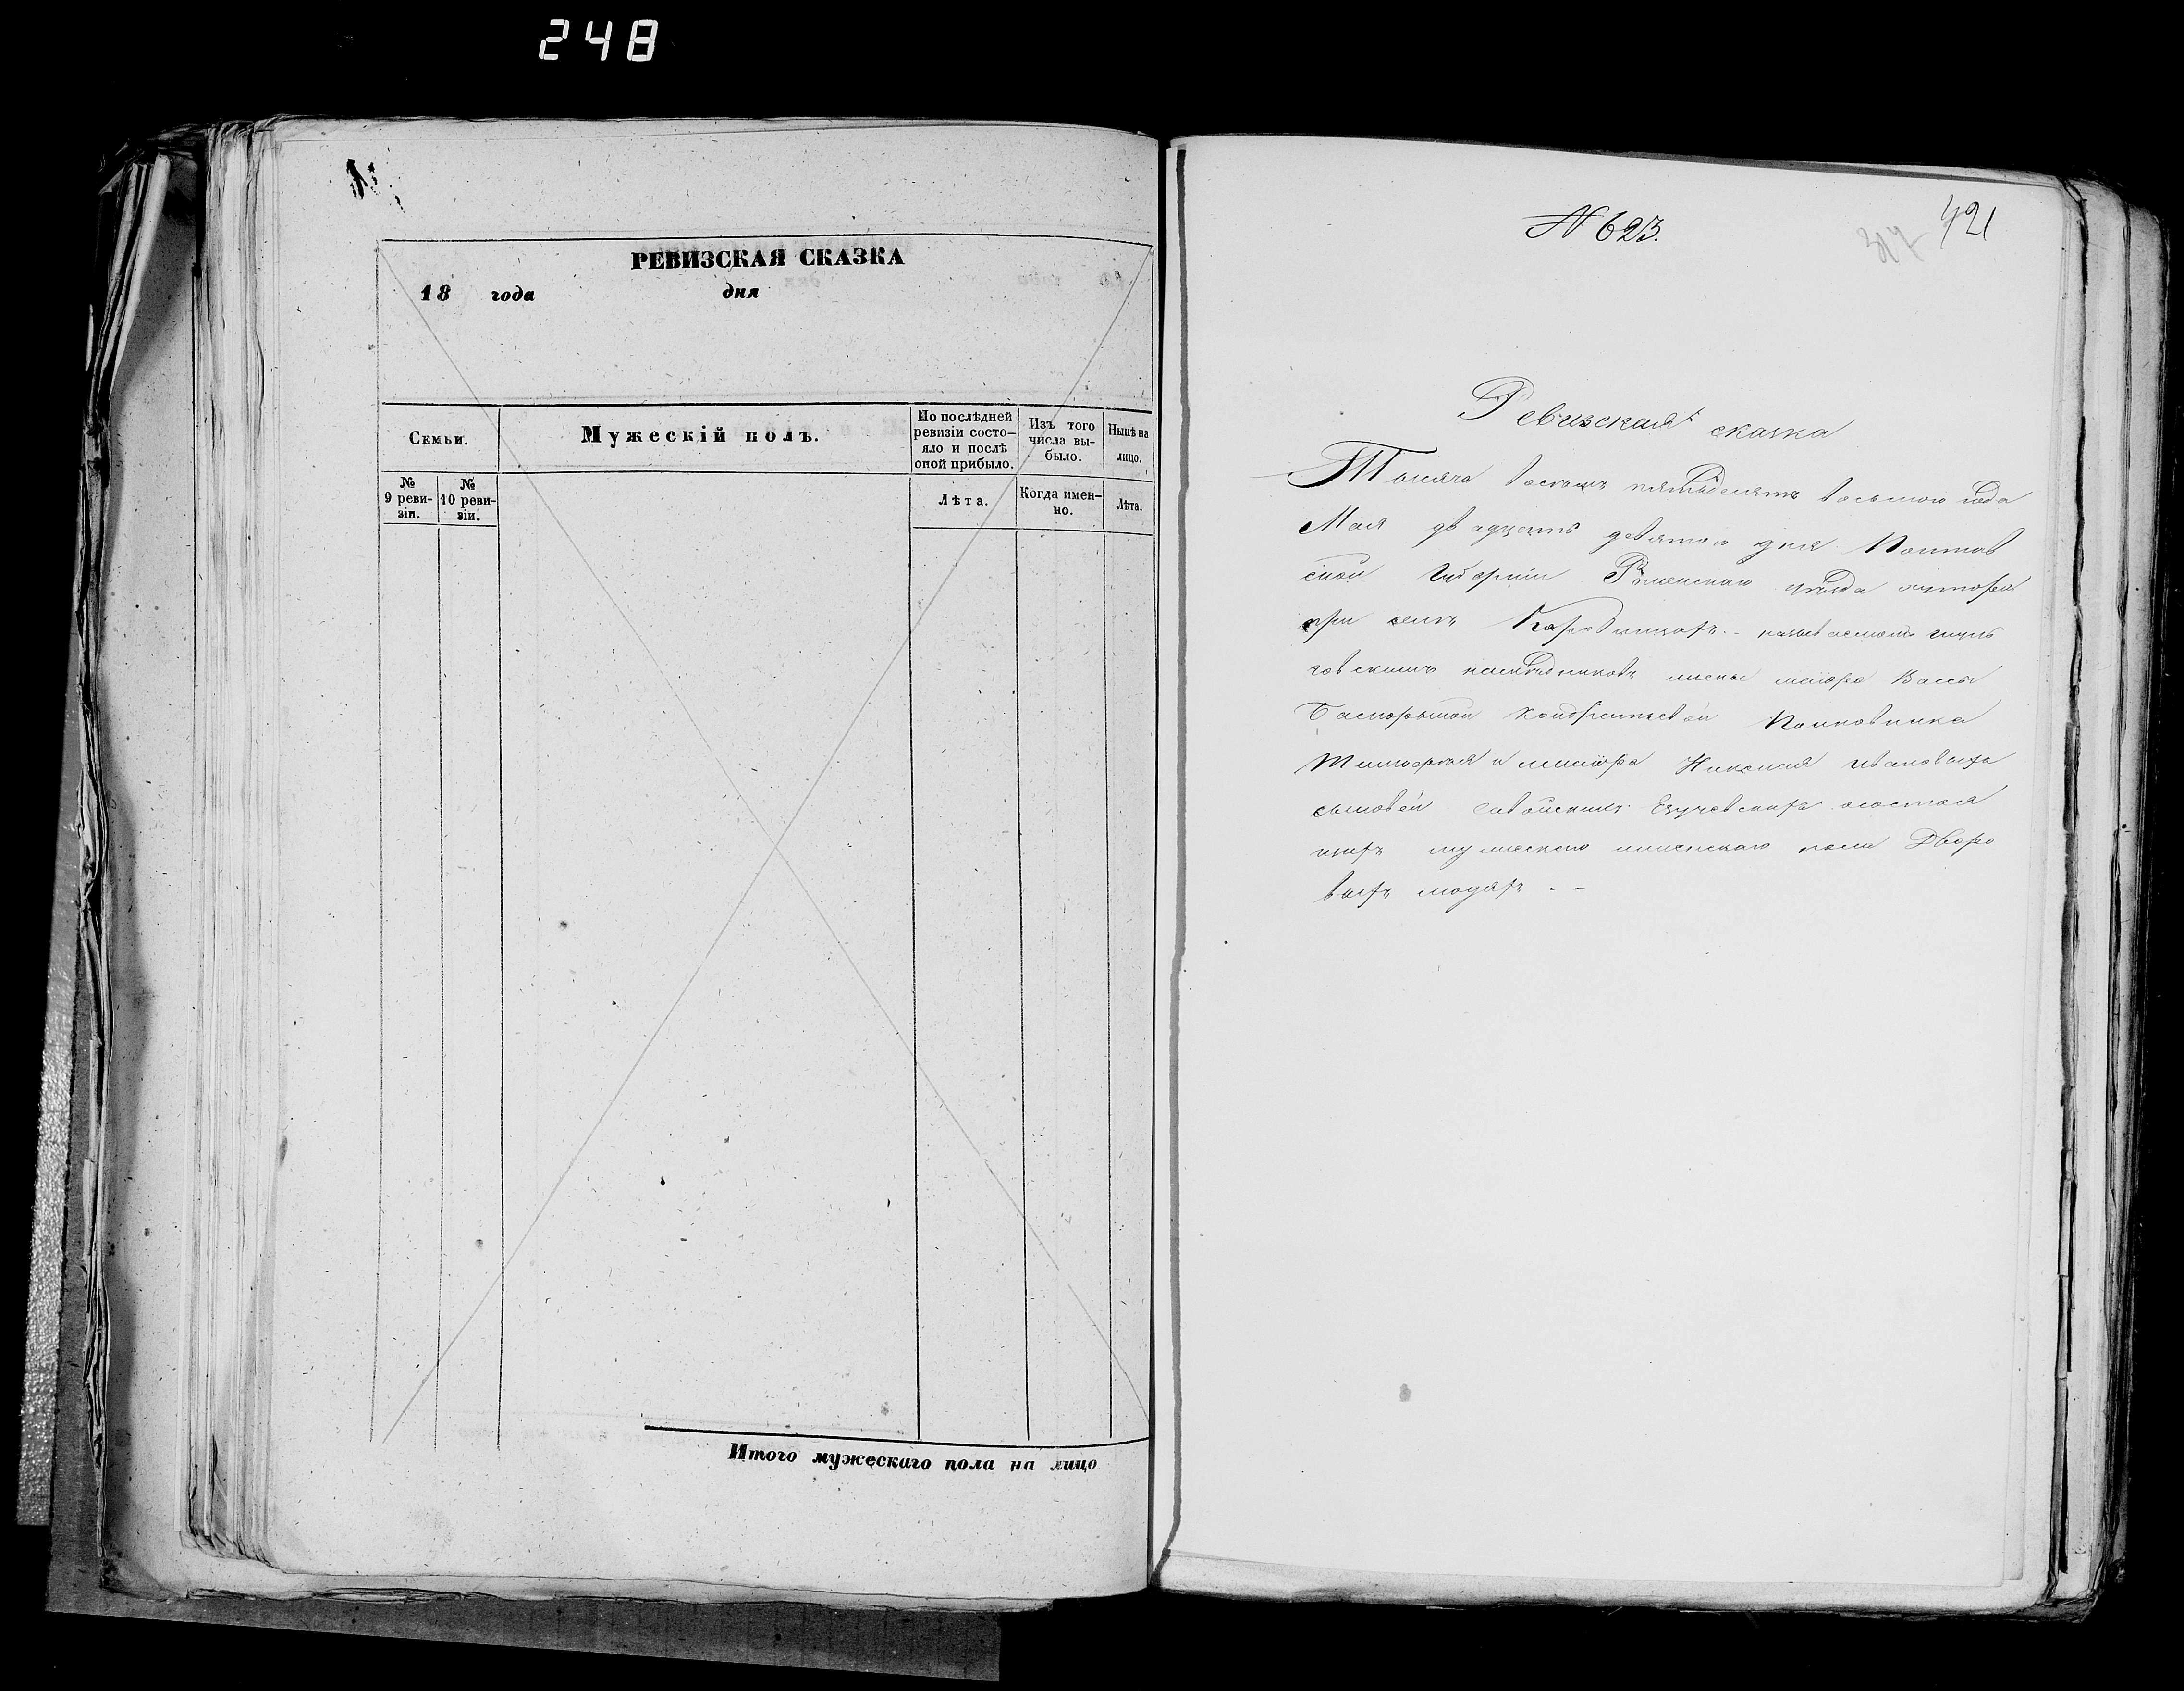 248
РЕВИЗСКАЯ СКАЗКА
18 года дня
Семьи.
Мужескій полъ.
По послѣдней ревизіи состо-яло и послѣ оной прибыло.
Изъ того числа вы-было.
Нынѣ на лицо.
№ 9 реви-зіи.
№ 10 реви-зіи.
Лѣта.
Когда имен-но.
Лѣта.
Итого мужескаго пола на лицо
N 623.
317 421
Ревизская сказка
Тысяча восемь пятьдесятъ восьмого года
Мая двадцать девятого дня Полтав
ской Губерніи Роменскаго уѣзда хутора
при селѣ Коровинцахъ
наслѣдниковъ маіора
Кондратьевой Полковника
и маіора Николая Ивановича
сыновей состоя
щихъ мужеского женскаго пола Дворо
выхъ людяхъ . -